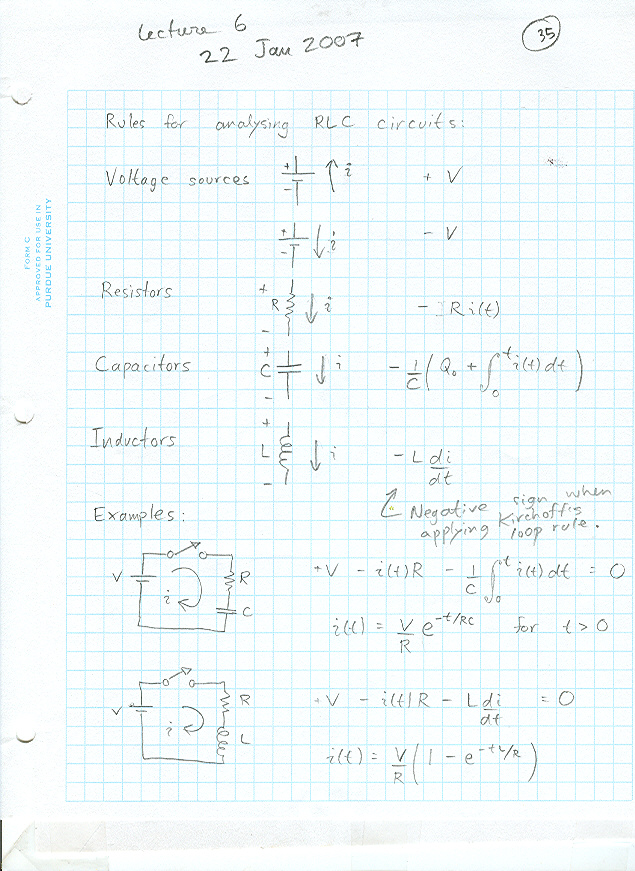 Lecture 6
22 Jan 2007
35
FORM C
APPROVED FOR USE IN
PURDUE UNIVERSITY
Rules for analysing RLC circuits:
Voltage sources + - i + V
+ - i - V
Resistors + R - i - R i(t)
Capacitors + C - i - 1/C ( Q₀ + ∫₀ᵗ i(t) dt )
Inductors + L - i - L di/dt
Negative sign when
applying Kirchoff's
loop rule.
Examples:
V i R C
+V - i(t)R - 1/C ∫₀ᵗ i(t) dt = 0
i(t) = V/R e^(-t/RC) for t > 0
V i R L
+V - i(t)R - L di/dt = 0
i(t) = V/R ( 1 - e^(-tL/R) )